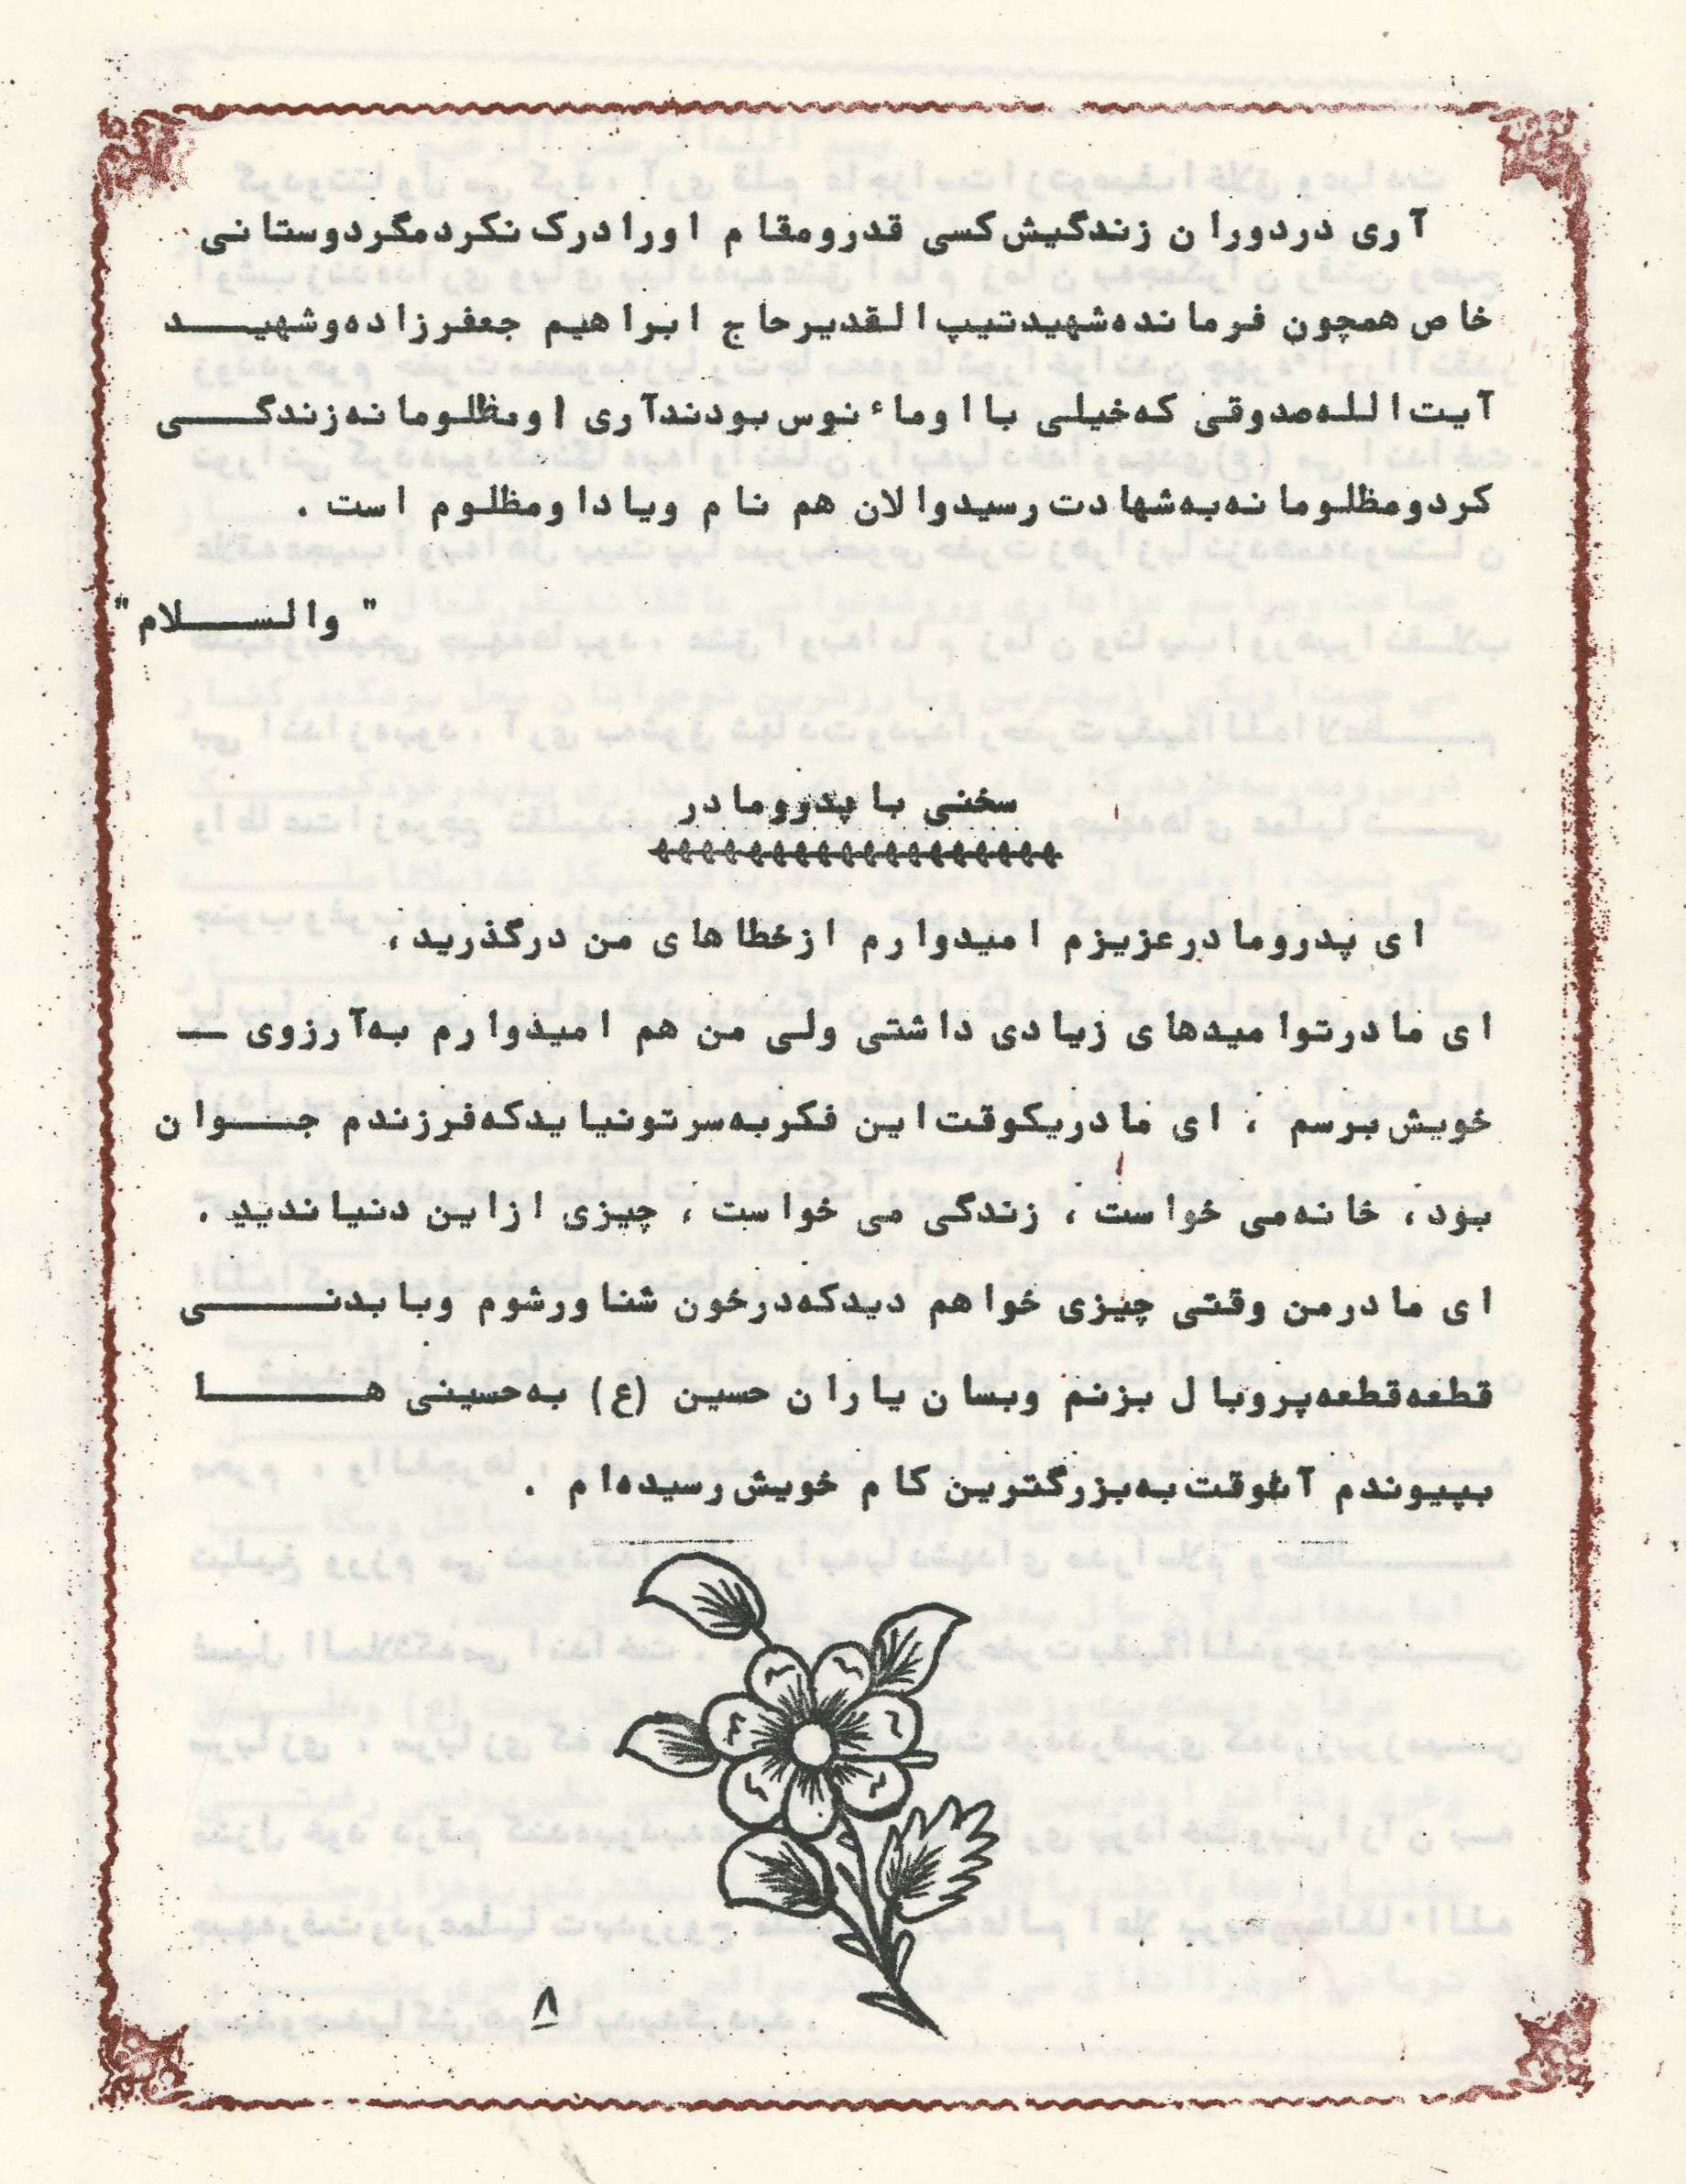 آری در دوران زندگیش کسی قدر و مقام او را درک نکرد مگر دوستانی
خاص همچون فرمانده شهید تیپ الغدیر حاج ابراهیم جعفرزاده و شهیـــد
آیت الله صدوقی که خیلی با او ماءنوس بودند آری او مظلومانه زندگـــی
کرد و مظلومانه به شهادت رسید و الان هم نام و یاد او مظلوم است .
" والســـلام "
سخنی با پدر و مادر
ای پدر و مادر عزیزم امیدوارم از خطاهای من درگذرید ،
ای مادر تو امیدهای زیادی داشتی ولی من هم امیدوارم به آرزوی ـ
خویش برسم ، ای مادر یکوقت این فکر به سر تو نیاید که فرزندم جـــوان
بود ، خانه می خواست ، زندگی می خواست ، چیزی از این دنیا ندید .
ای مادر من وقتی چیزی خواهم دید که در خون شناور شوم و با بدنـــی
قطعه قطعه پر و بال بزنم و بسان یاران حسین (ع) به حسینی هـــا
بپیوندم آنوقت به بزرگترین کام خویش رسیده ام .
۸